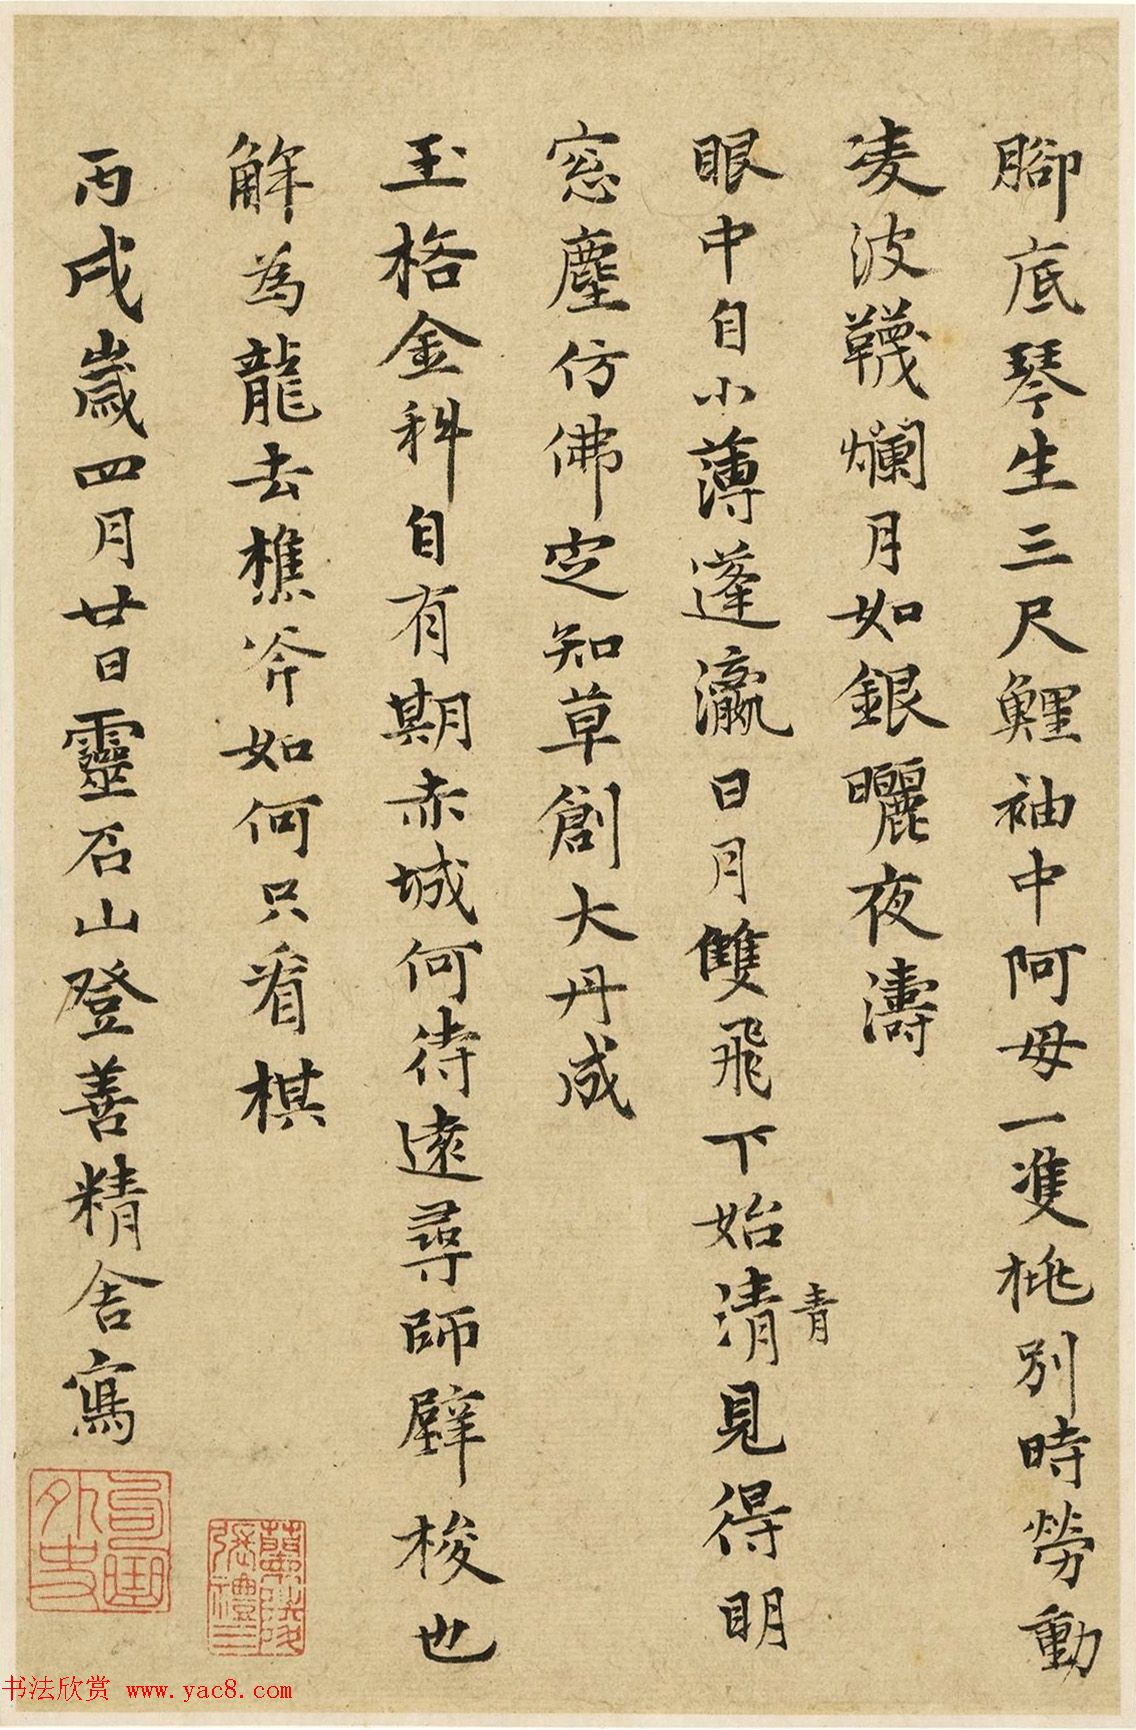 腳底琴生三尺鯉袖中阿母一雙桃別時勞動
凌波韈爛月如銀曬夜濤
眼中自小薄蓬瀛日月雙飛下始清見得明
青
窓塵仿佛定知草創大丹成
玉格金科自有期赤城何待遠尋師壁梭也
解為龍去樵斧如何只看棋
丙戌歲四月廿日靈石山登善精舍寫
外史
蘭陵
張禮
书法欣赏 www.yac8.com